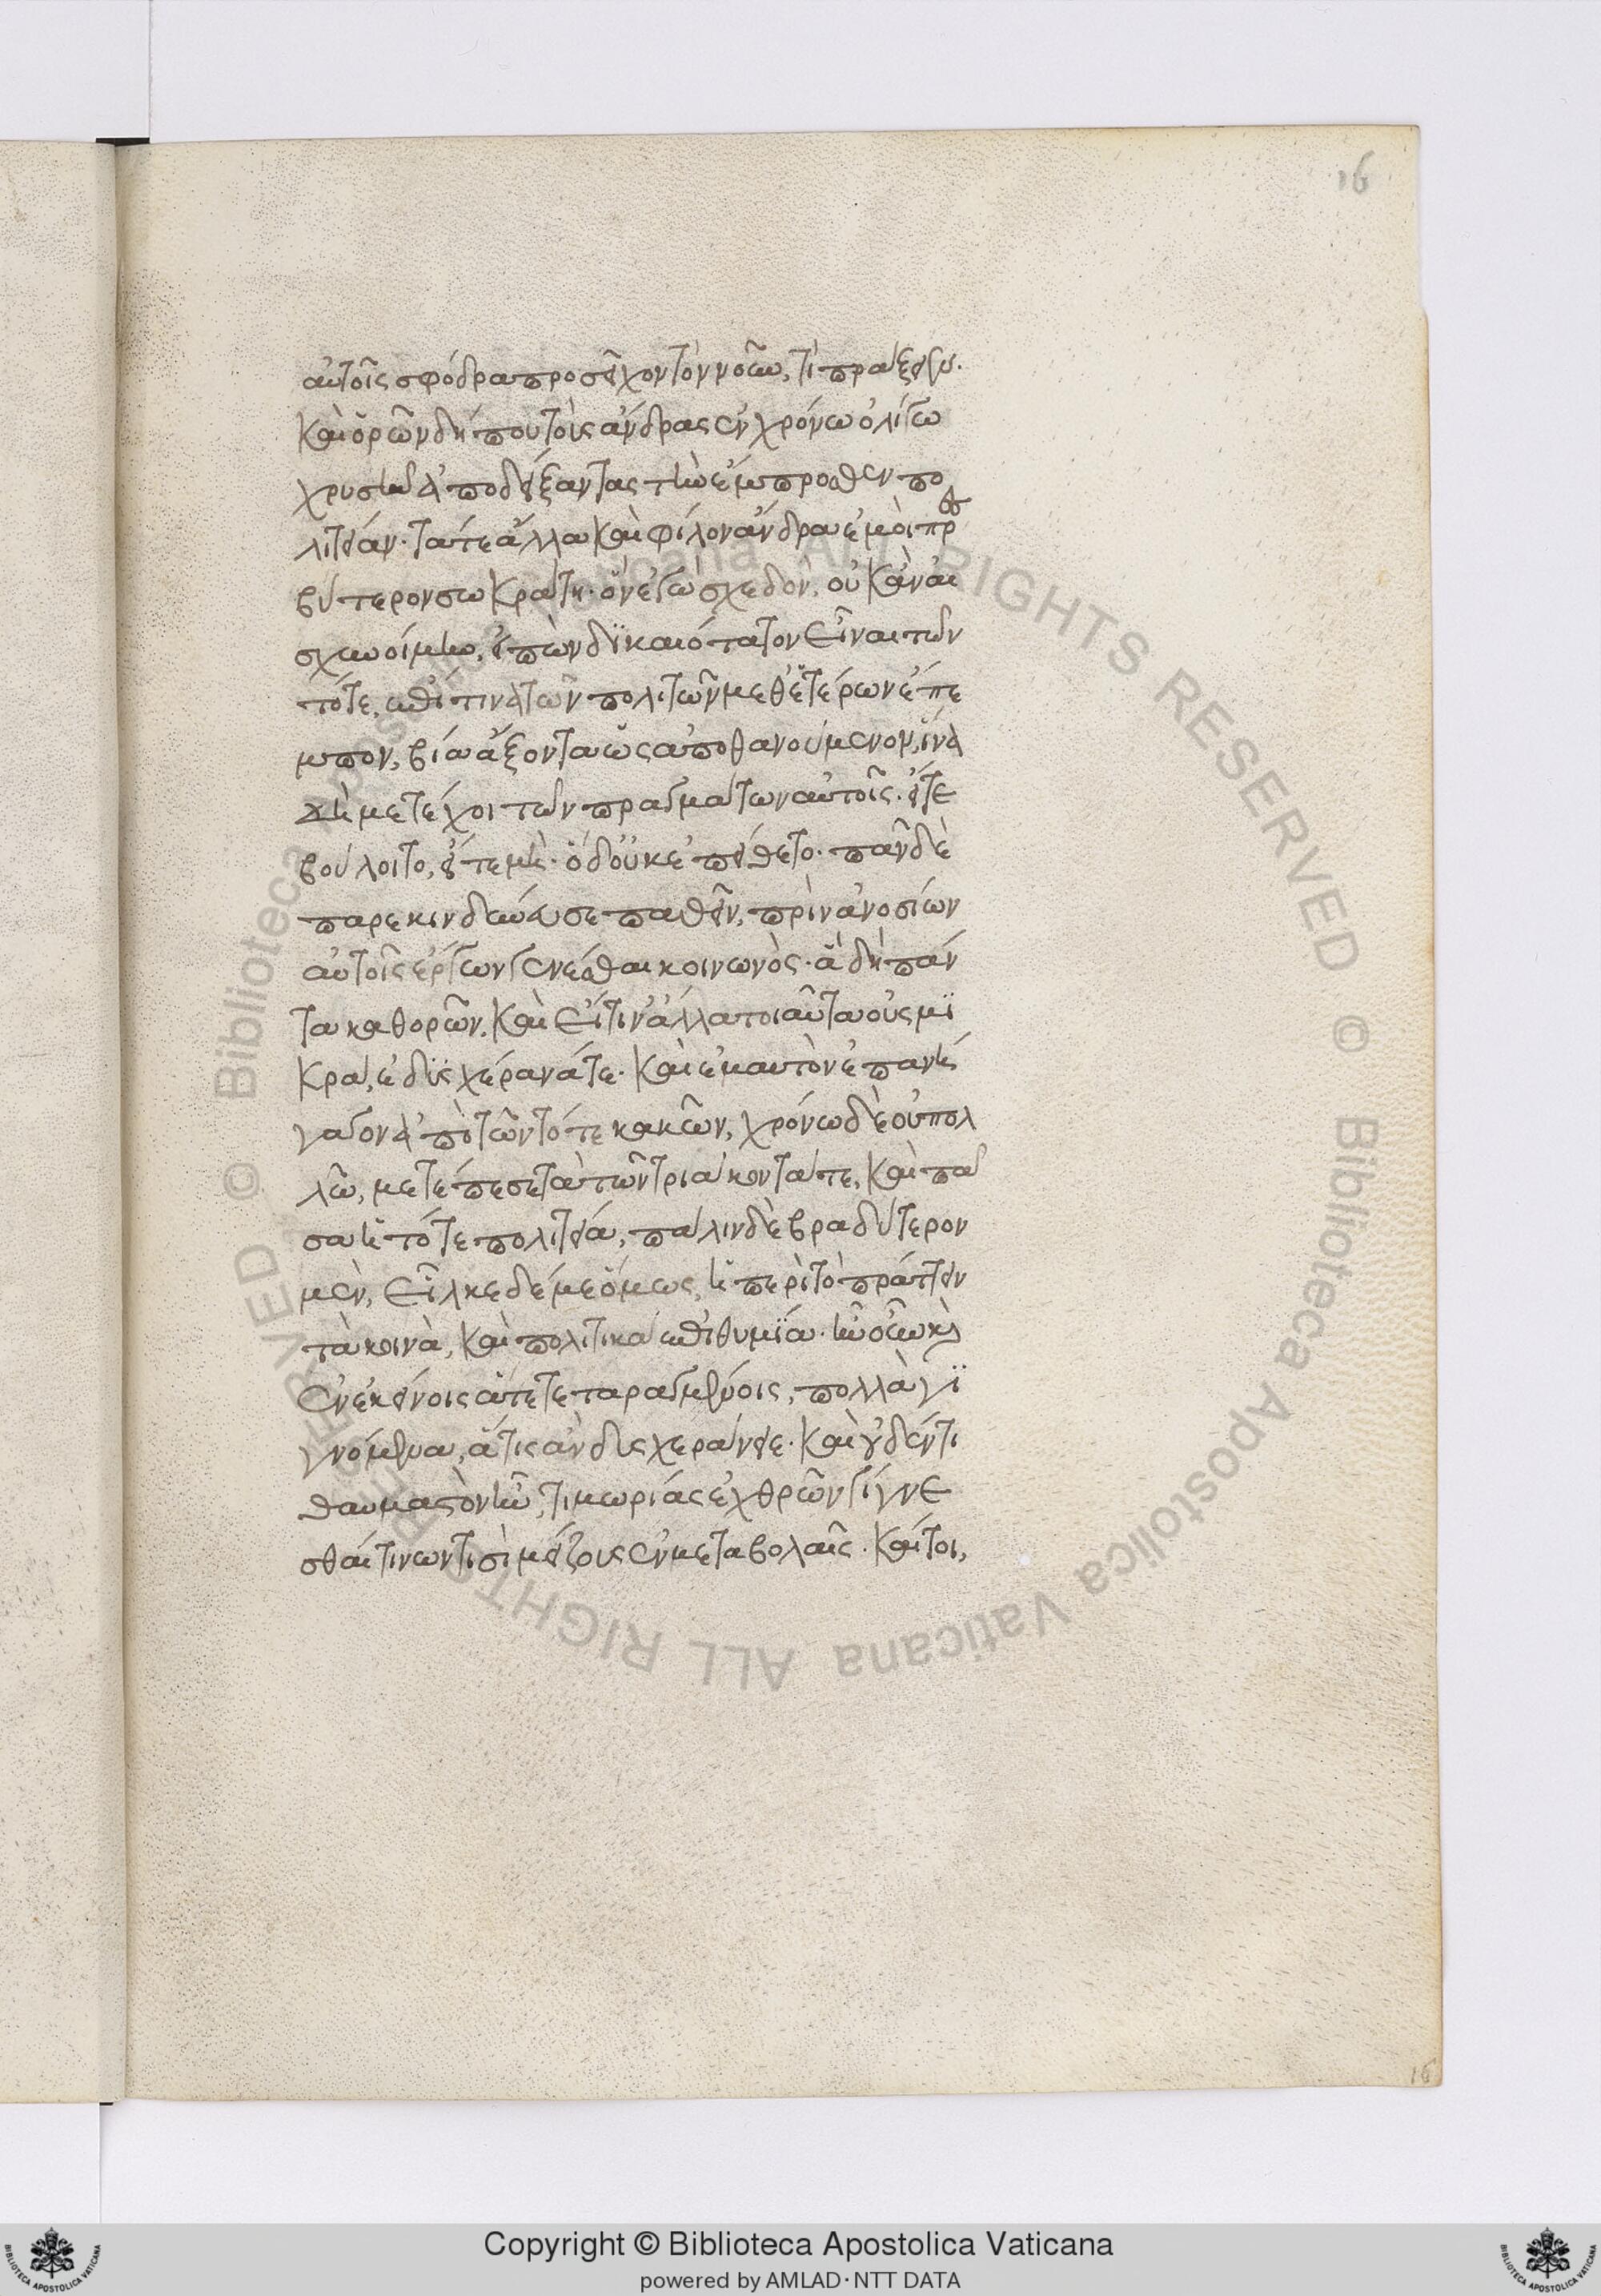 16
αὐτοῖς σφόδρα προσεῖχον τὸν νοῦν, τί πράξειεν.
καὶ ὁρῶν δή που τοὺς ἄνδρας ἐν χρόνω ὀλίγω
χρυσὴν ἀποδείξαντας τὴν ἔμπροσθεν πο
λιτείαν· τά τε ἄλλα καὶ φίλον ἄνδρα ἐμοὶ πρεσ
βύτερον σωκράτη· ὃν ἐγὼ σχεδὸν, οὐκ ἂν αἰ
σχυνοίμην, εἰπὼν δϊκαιότατον εἶναι τῶν
τότε, ἐπί τινα τῶν πολιτῶν μεθ' ἑτέρων ἔπε
μπον, βία ἄξοντα ὡς ἀποθανούμενον, ἵνα
δὴ μετέχοι τῶν πραγμάτων αὐτοῖς· εἴτε
βούλοιτο, εἴτε μή· ὁ δ' οὐκ ἐπείθετο· πᾶν δὲ
παρεκινδύνευσε παθεῖν, πρὶν ἀνοσίων
αὐτοῖς ἔργων γενέσθαι κοινωνός· ἃ δὴ πάν
τα καθορῶν, καὶ εἴ τιν' ἄλλα τοιαῦτα οὐ σμϊ
κρὰ, ἐδϋσχέρανά τε· καὶ ἐμαυτὸν ἐπανή
γαγον ἀπὸ τῶν τότε κακῶν, χρόνω δὲ οὐ πολ
λῶ, μετέπεσε τὰ τῶν τριάκοντά τε, καὶ πᾶ
σα ἡ τότε πολιτεία, πάλιν δὲ βραδύτερον
μὲν, εἷλκε δέ με ὅμως, ἡ περὶ τὸ πράττειν
τὰ κοινὰ, καὶ πολιτικὰ ἐπιθυμϊα· ἦν οὖν καὶ
ἐν ἐκείνοις ἅτε τεταραγμένοις, πολλὰ γϊ
γνόμενα, ἅ τις ἂν δυσχεράνειε· καὶ οὐδέν τι
θαυμαστὸν ἦν, τιμωρίας ἐχθρῶν γίγνε
σθαί τινων τισὶ μείζους ἐν μεταβολαῖς· καί τοι,
16
© Biblioteca Apostolica Vaticana ALL RIGHTS RESERVED © Biblioteca Apostolica Vaticana ALL RIGHTS RESERVED
Copyright © Biblioteca Apostolica Vaticana
powered by AMLAD·NTT DATA
BIBLIOTECA APOSTOLICA VATICANA
BIBLIOTECA APOSTOLICA VATICANA